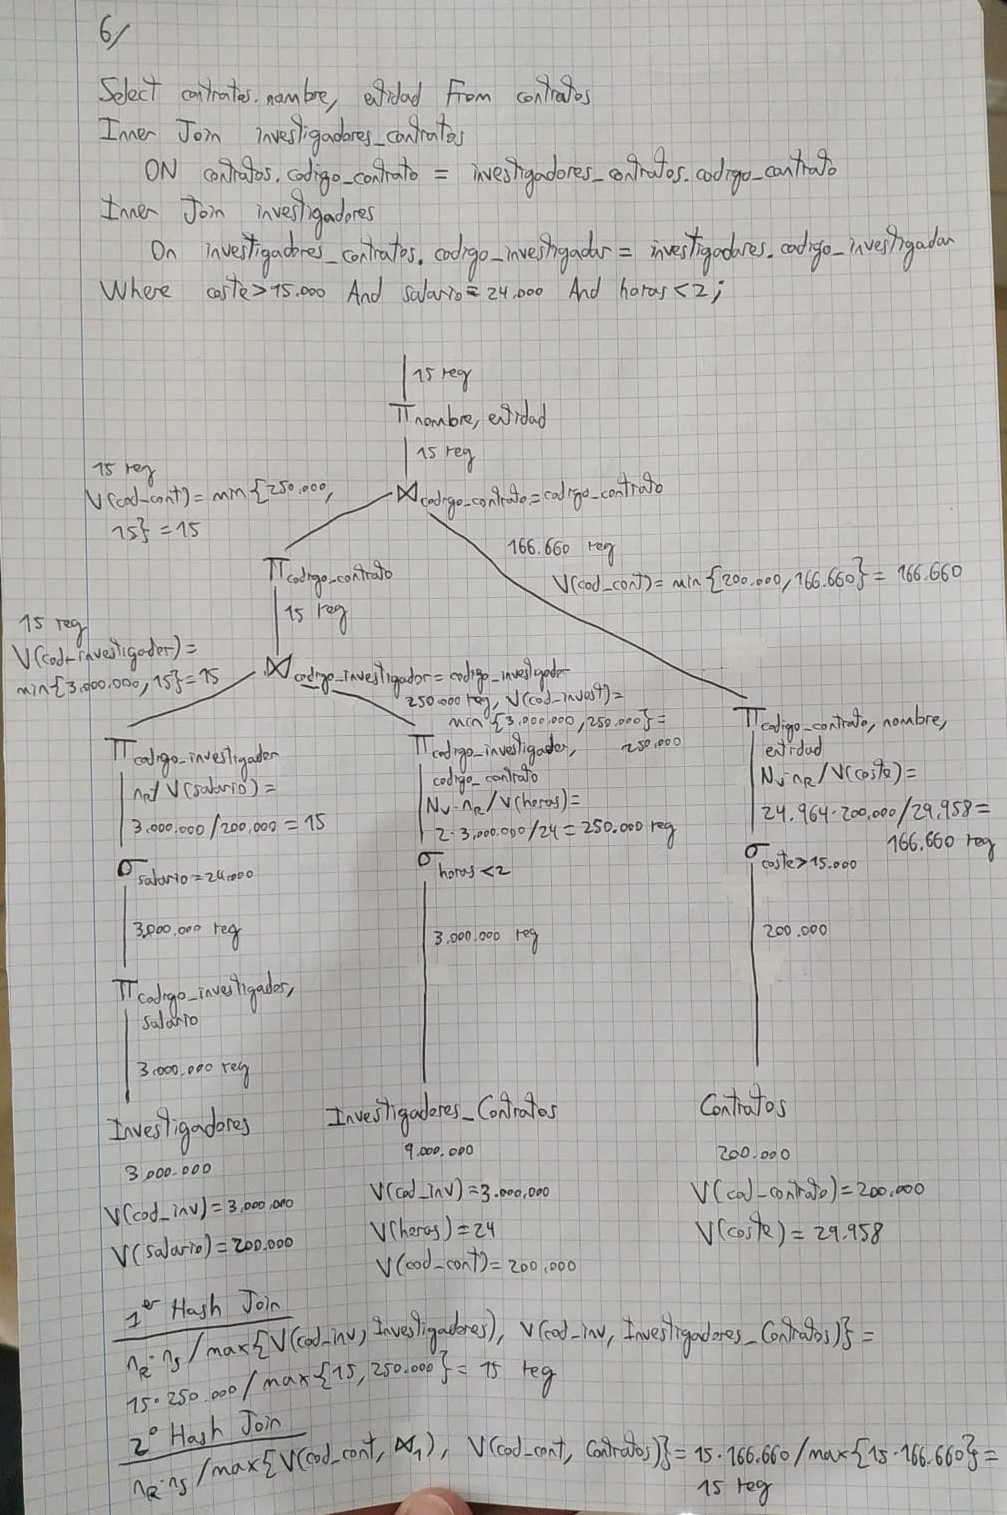 6/
Select contratos.nombre, entidad From contratos
Inner Join investigadores_contratos
ON contratos.codigo_contrato = investigadores_contratos.codigo_contrato
Inner Join investigadores
On investigadores_contratos.codigo_investigador = investigadores.codigo_investigador
Where coste>15.000 And salario=24.000 And horas<2;
15 reg
π nombre, entidad
15 reg
⋈ codigo_contrato=codigo_contrato
15 reg
V(cod_cont)=min{250.000,
15}=15
166.660 reg
V(cod_cont)=min{200.000,166.660}=166.660
π codigo_contrato
15 reg
15 reg
V(cod_investigador)=
min{3.000.000,15}=15
⋈ codigo_investigador=codigo_investigador
250.000 reg, V(cod_invest)=
min{3.000.000,250.000}=
250.000
π codigo_investigador
nr/V(salario)=
3.000.000/200.000=15
σ salario=24.000
3.000.000 reg
π codigo_investigador,
salario
3.000.000 reg
π codigo_investigador,
codigo_contrato
Nv·nR/V(horas)=
2·3.000.000/24=250.000 reg
σ horas<2
3.000.000 reg
π codigo_contrato, nombre,
entidad
Nv·nR/V(coste)=
24.964·200.000/29.958=
166.660 reg
σ coste>15.000
200.000
Investigadores
3.000.000
V(cod_inv)=3.000.000
V(salario)=200.000
Investigadores_Contratos
9.000.000
V(cod_inv)=3.000.000
V(horas)=24
V(cod_cont)=200.000
Contratos
200.000
V(cod_contrato)=200.000
V(coste)=29.958
1er Hash Join
nR·ns/max{V(cod_inv, Investigadores), V(cod_inv, Investigadores_Contratos)}=
15·250.000/max{15,250.000}=15 reg
2º Hash Join
nR·ns/max{V(cod_cont, ⋈1), V(cod_cont, Contratos)}=15·166.660/max{15·166.660}=
15 reg